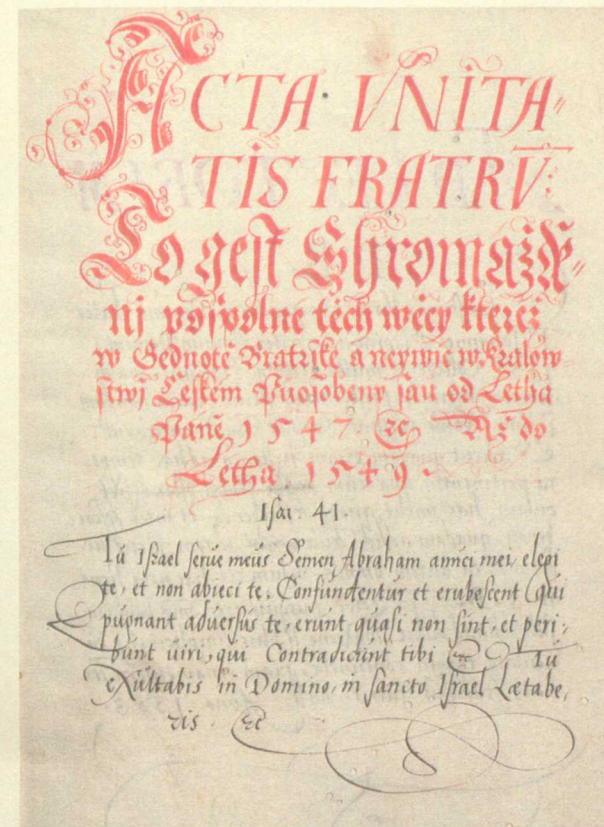 ACTA · VNITA-
TIS FRATRV̄:
To gest Shromážďe-
nj pospolné těch wěcy kteréž
w Gednotě Bratrské a neywic w Kralow
stwj Czeském Puosobeny sau od Letha
Páně 1547 &c Až do
Letha 1549.
Isai. 41.
Tu Israel serue meus Semen Abraham amici mei elegi
te, et non abieci te. Confundentur et erubescent qui
pugnant aduersus te, erunt quasi non sint, et peri-
bunt uiri, qui Contradicunt tibi &c Tu
eXultabis in Domino, in sancto Israel Lætabe,
ris. &c